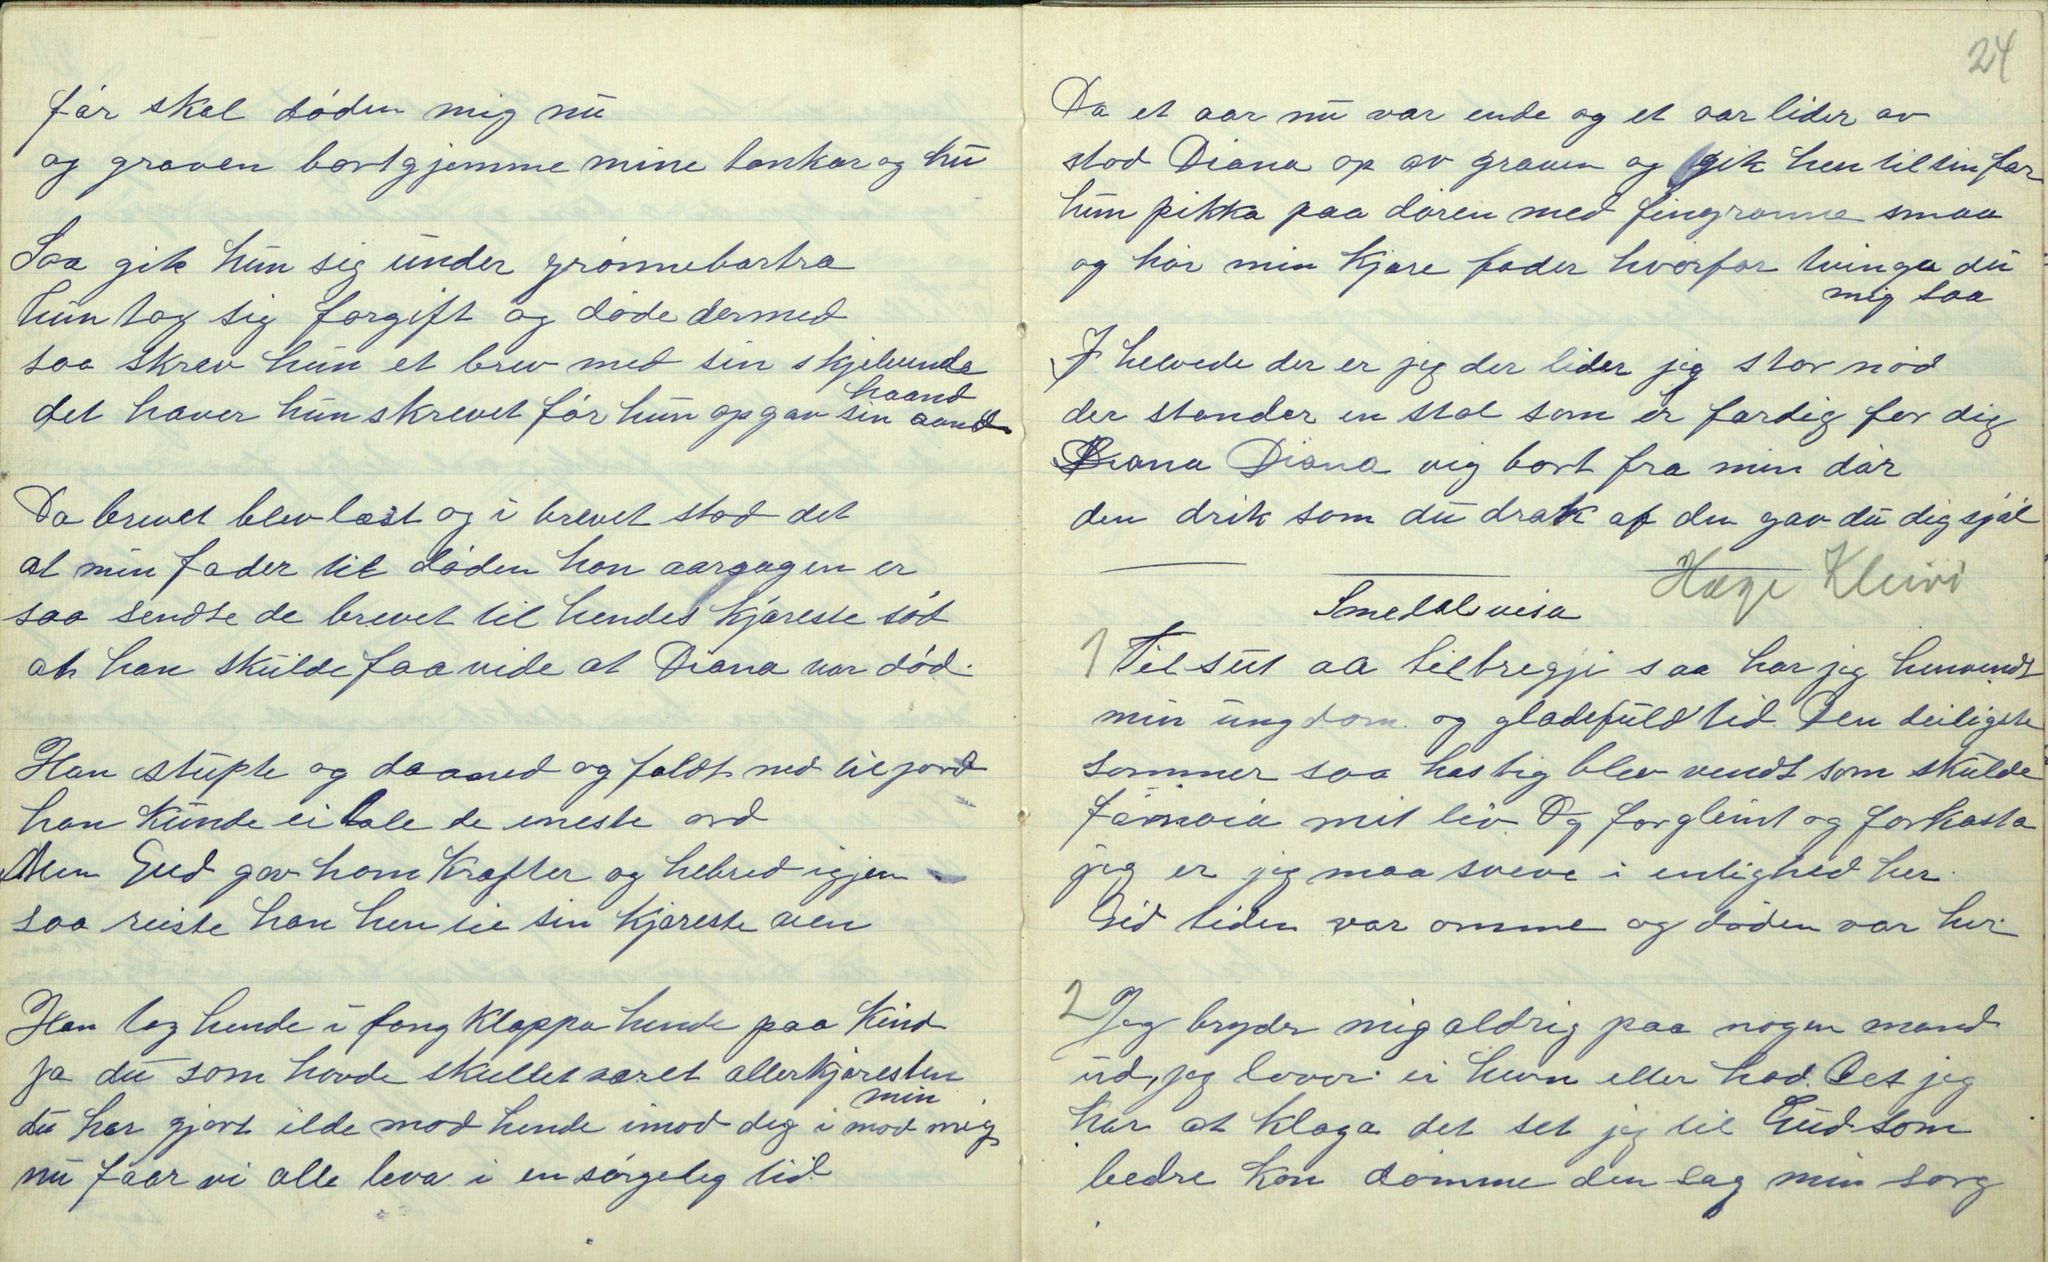 før skal døden mig nu
og graven bortgjemme mine tankar og hu
Saa gik hun sig under grønnebartra
hun tog sig forgift og døde dermed
saa skrev hun et brev med sin skjelvende
haand
det haver hun skrevet før hun opgav sin aand
Da brevet blev læst og i brevet stod det
at min fader til døden han aarsagen er
saa sendte de brevet til hendes kjæreste sød
at han skulde faa vide at Diana var død.
Han stupte og daaned og faldt ned til jord
han kunde ei tale de eneste ord
Men Gud gav ham kræfter og helred igjen
saa reiste han hen til sin kjæreste ven
Han tog hende i fang klappa hende paa kind
Ja du som havde skullet været allerkjæresten
min
du har gjort ilde mod hende imod dig i mod mig
nu faar vi alle leva i en sørgelig tid
24
Da et aar nu var ende og et aar lider av
stod Diana op av graven og gik hen til sin far
hun pikka paa døren med fingranne smaa
og hør min kjære fader hvorfor tvinga du
mig saa
I helvede der er jeg der lider jeg stor nød
der stander en stol som er færdig for dig
Diana Diana vig bort fra min dør
den drik som du drak af den gav du dig sjøl
Hæge Kleivi
Smedalvisa
1 Til sut aa tilbregji saa har jeg henvendt
min ungdom og gladefuld tid. Den deiligste
sommer saa hastig blev vendt som skulde
fornøia mit liv. Og forglemt og forkasta
jeg er jeg maa sveve i enlighed her.
Gid tiden var omme og døden var her.
2 Jeg bryder mig aldrig paa nogen mand
ud, jeg lover ei hevn eller had. Det jeg
har at klaga det set jeg til Gud som
bedre kan dømme den sag min sorg